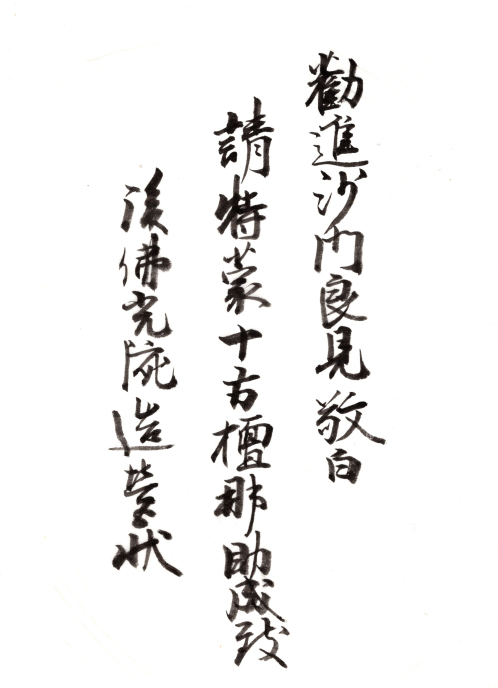 勸進沙門良見敬白
請特蒙十方檀那助成致
後佛光院造營状